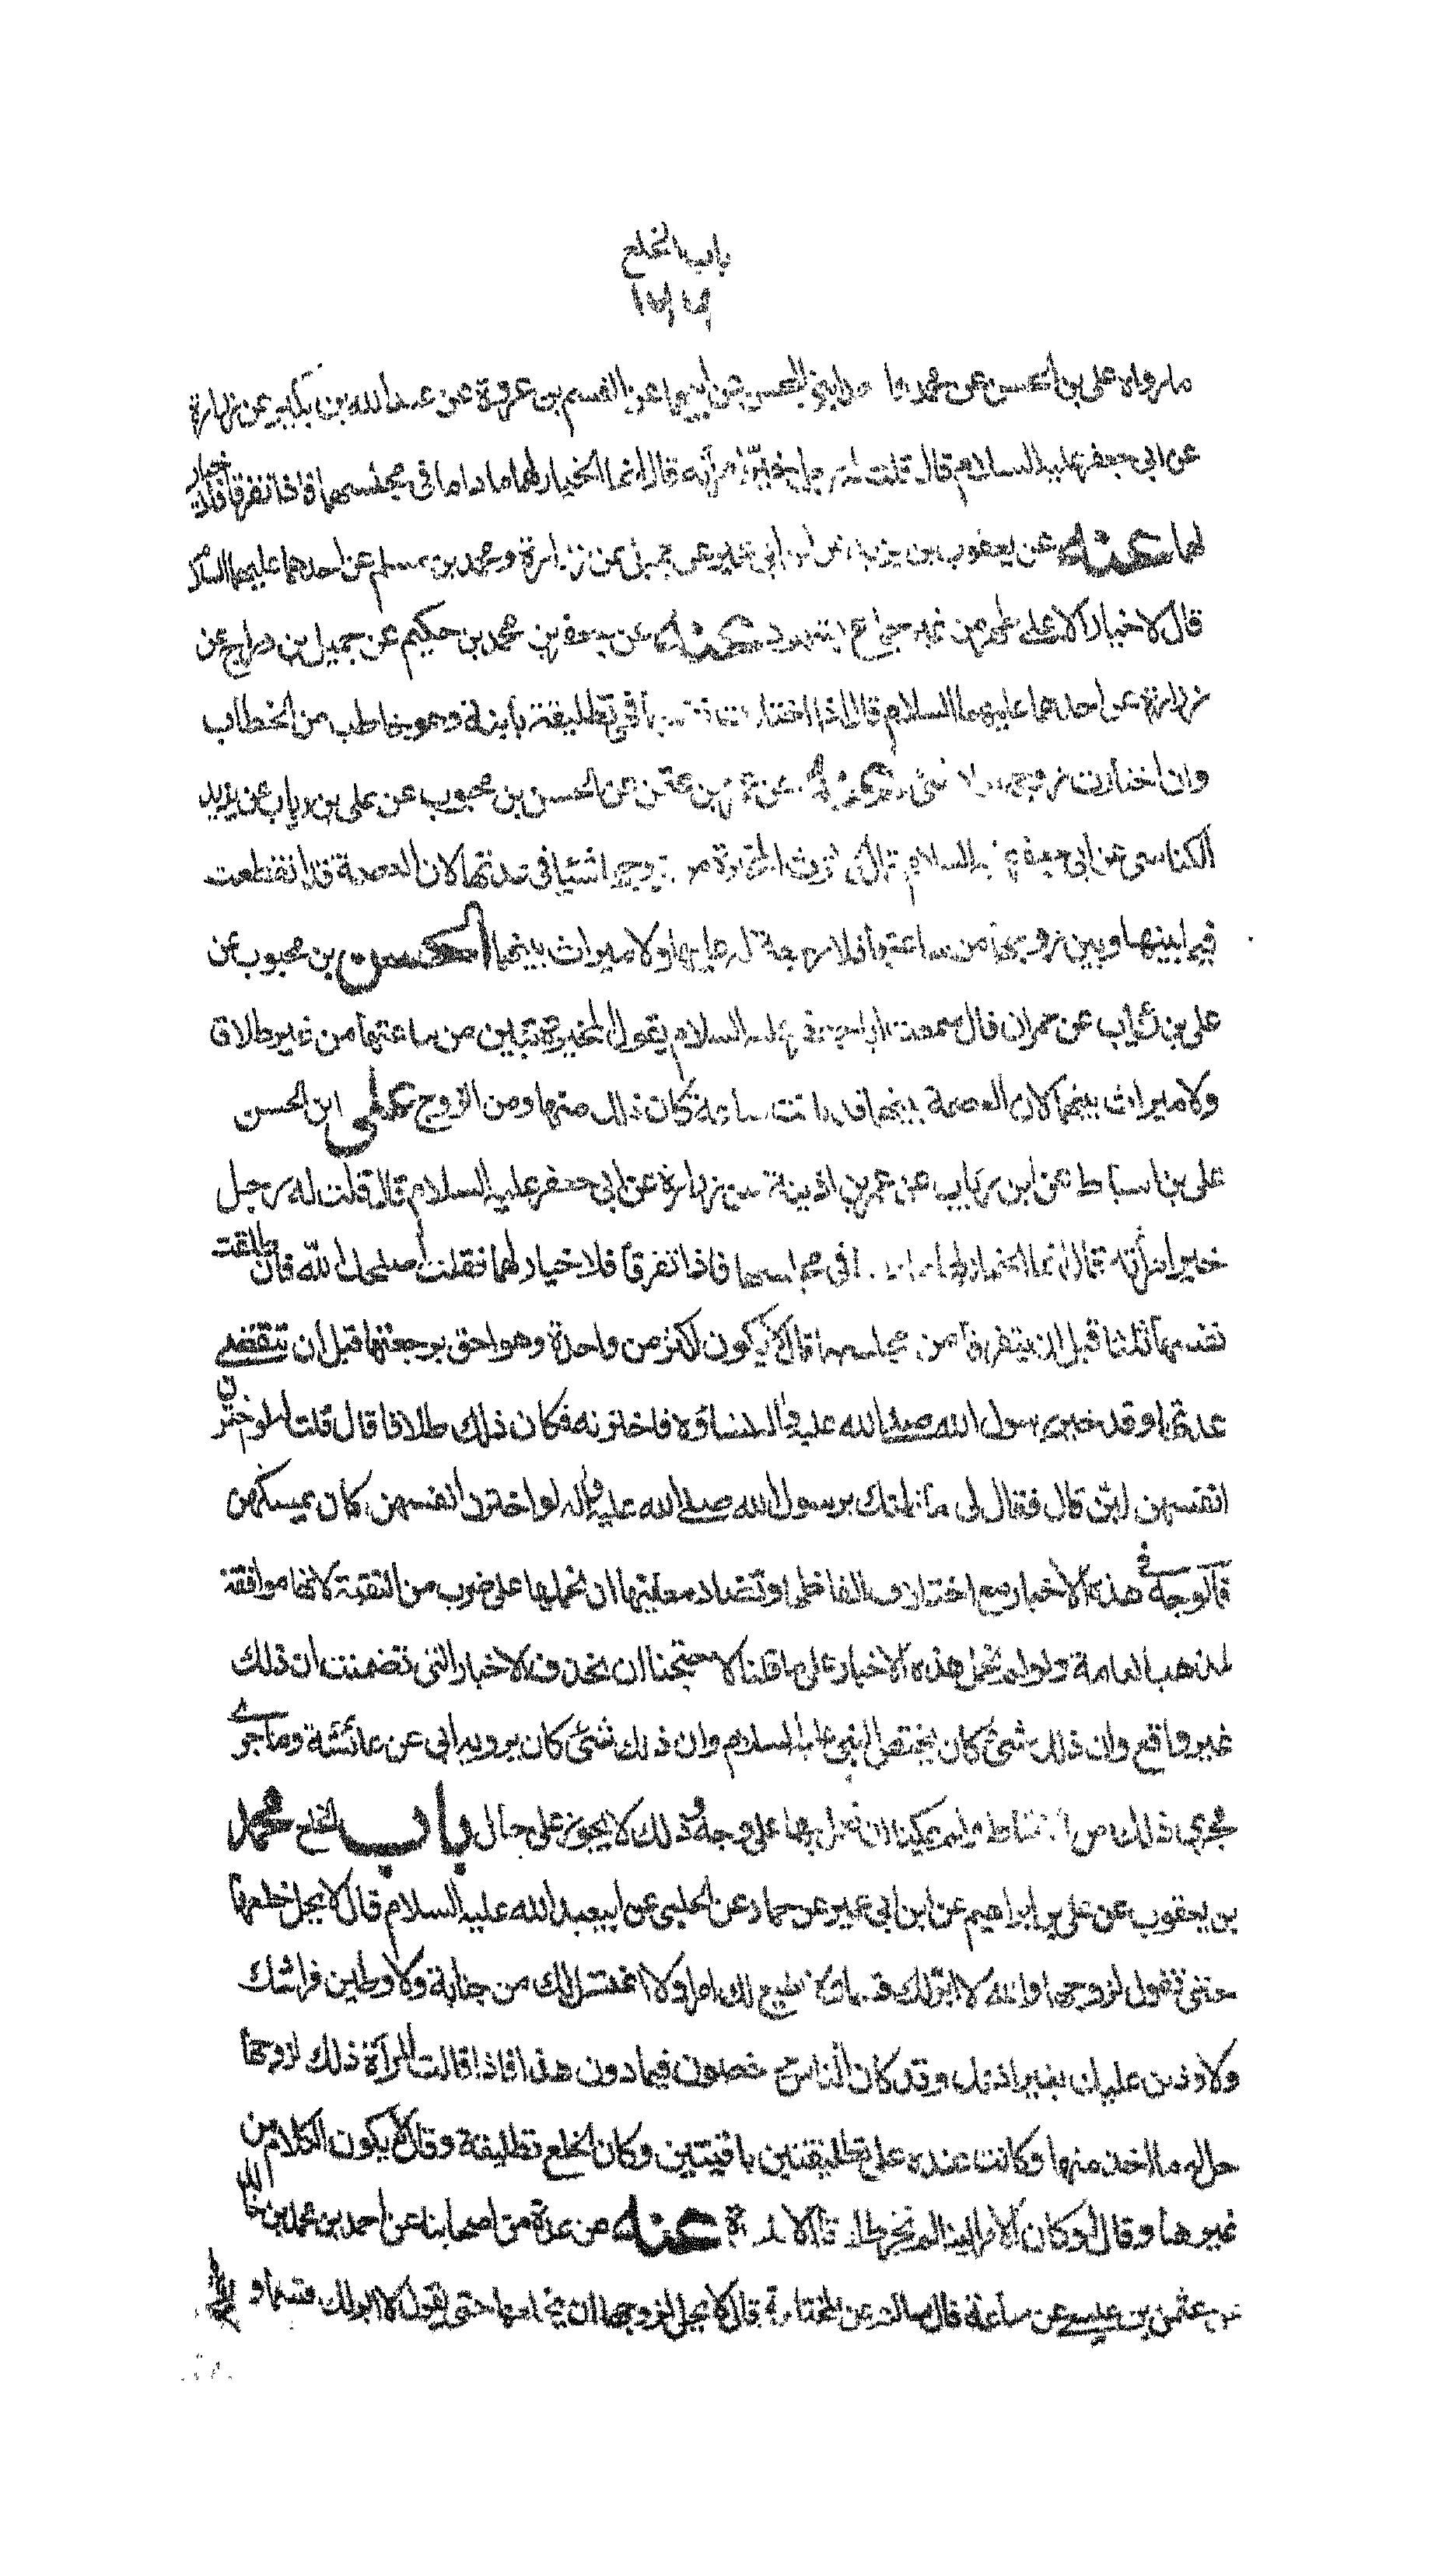 باب الخلع
ما رواه على بن الحسن عن محمد و احمد ابنى الحسن عن ابيهما عن القسم بن عروة عن عبد الله بن بكير عن زرارة
عن ابى جعفر عليه السلام قال قلت له رجل خير امرأته قال انما الخيار لهما ما داما فى مجلسهما فاذا تفرقا فلا خيار
لهما عنه عن يعقوب بن يزيد عن ابن ابى عمير عن جميل عن زرارة ومحمد بن مسلم عن احدهما عليهما السلام
قال لا خيار الا على طهر من غير جماع بشهود عنه عن جعفر بن محمد بن حكيم عن جميل بن دراج عن
زرارة عن احدهما عليهما السلام قال اذا اختارت نفسها فهى تطليقة باينة وهو خاطب من الخطاب
وان اختارت زوجها فلا شئ عنه عن عن الحسن بن محبوب عن على بن رياب عن يزيد
الكناسى عن ابى جعفر عليه السلام قال لا ترث المخيرة من زوجها شيئا فى عدتها لان العصمة قد انقطعت
فيما بينها وبين زوجها من ساعتها فلا رجعة له عليها ولا ميراث بينهما الحسن بن محبوب عن
على بن رئاب عن حمران قال سمعت ابا جعفر عليه السلام يقول المخيرة تبين من ساعتها من غير طلاق
ولا ميراث بينهما لان العصمة بينهما قد بانت ساعة كان ذلك منها ومن الزوج على ابن الحسن
على بن اسباط عن ابن رياب عن عمر بن اذينة عن زرارة عن ابى جعفر عليه السلام قال قلت له رجل
خير امرأته فقال انما الخيار لهما ما داما فى مجلسهما فاذا تفرقا فلا خيار لهما فقلت اصلحك الله فان طلقت
نفسها ثلثا قبل ان يتفرقا من مجلسهما قال لا يكون اكثر من واحدة وهو احق برجعتها قبل ان تنقضى
عدتها وقد خير رسول الله صلى الله عليه واله نساؤه فاخترنه فكان ذلك طلاقا قال قلت له لو اخترن
انفسهن لبن قال فقال لى ما ظنك برسول الله صلى الله عليه واله لو اخترن انفسهن كان يمسكهن
فالوجه فى هذه الاخبار مع اختلاف الفاظها وتضاد معانيها ان نحملها على ضرب من التقية لانها موافقة
لمذهب العامة ولو لم نحمل هذه الاخبار على ما قلنا لاحتجنا ان نحذف الاخبار التى تضمنت ان ذلك
غير واقع وان ذلك شئ كان يختص النبى عليه السلام وان ذلك شئ كان يرويه ابى عن عائشة وما جرى
مجرى ذلك من ولم يمكنا ان نعمل بها على وجه وذلك لا يجوز على حال باب الخلع محمد
بن يعقوب عن على بن ابراهيم عن ابن ابى عمير عن حماد عن الحلبى عن ابيعبد الله عليه السلام قال لا يحل خلعها
حتى تقول لزوجها والله لا ابر لك قسما ولا اطيع لك امرا ولا اغتسل لك من جنابة ولاوطين فراشك
ولاوذنن عليك بغير اذنك وقد كان الناس يرخصون فيما دون هذا فاذا قالت المرأة ذلك لزوجها
حل له ما اخذ منها وكانت عنده على تطليقتين باقيتين وكان الخلع تطليقة وقال يكون الكلام من
غيرها وقال لو كان الامر الينا لم نجز طلاقا الا للعدة عنه من عدة من اصحابنا عن احمد بن محمد بن خالد
عن عثمن بن عيسى عن سماعة قال سالته عن المختلعة قال لا يحل لزوجها ان يخلعها حتى تقول لا ابر لك قسما و